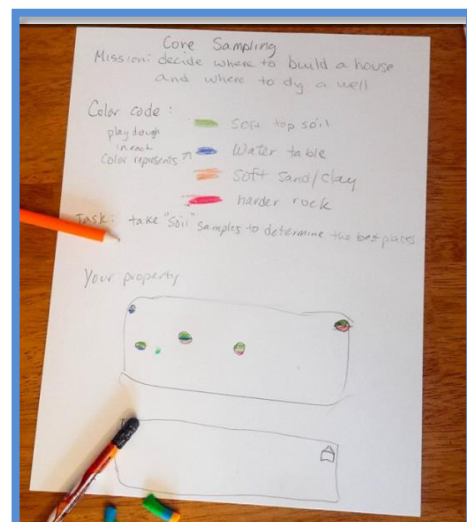 Core Sampling
Mission: decide where to build a house
and where to dig a well
Color code:
play dough
in each
Color represents
Soft top soil
Water table
Soft sand/clay
harder rock
Task: take "soil" samples to determine the best places
Your property